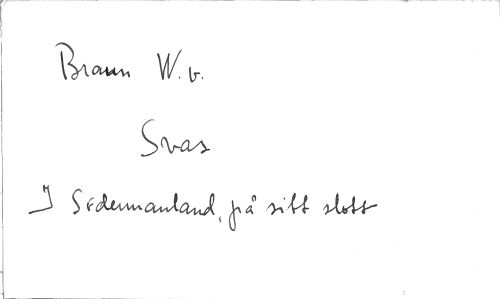 Braun W. v.
Svas
I Södermanland, på sitt slott